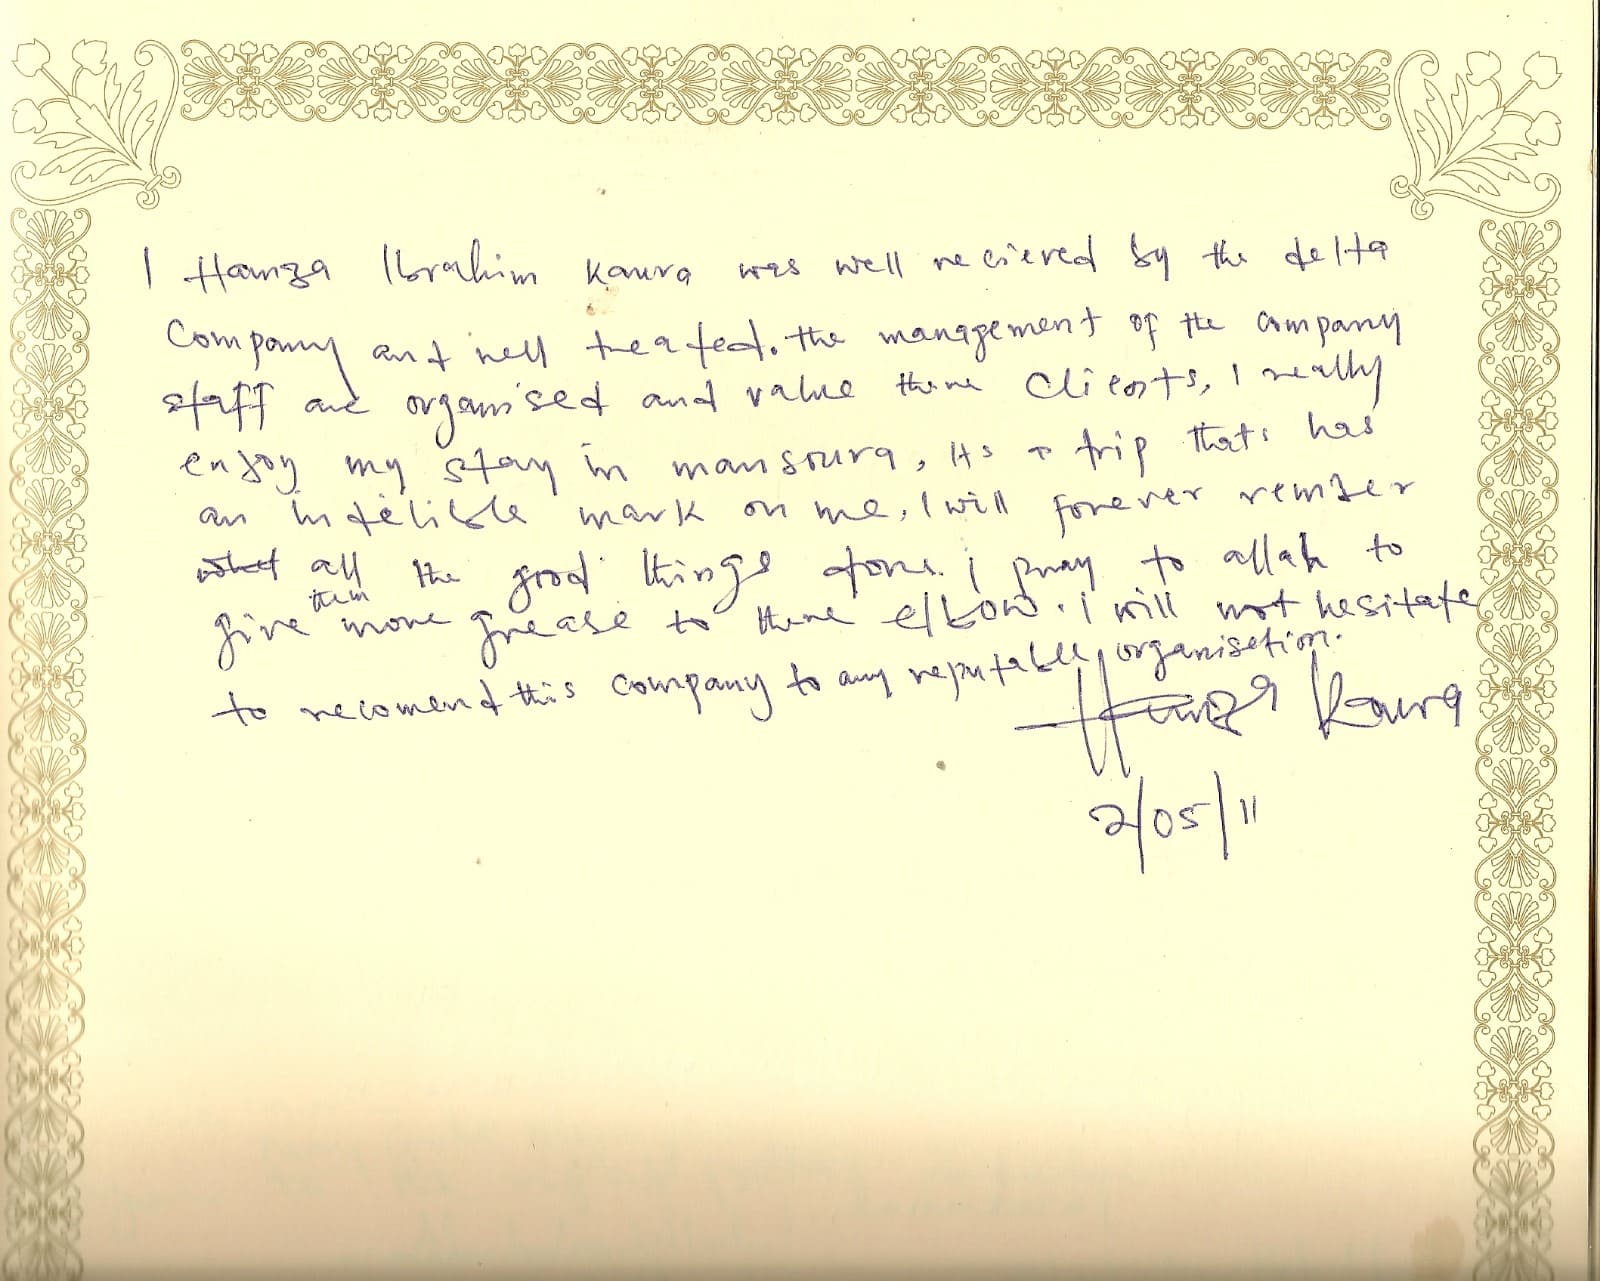 I Hamza Ibrahim Kaura was well recieved by the delta
Company and well treated. the management of the company
staff are organised and value there Clients, I really
enjoy my stay in mansoura, its a trip thats has
an indelible mark on me, I will forever rember
what all the good things done. I pray to allah to
give them more grease to there elbow. I will not hesitate
to recomend this company to any reputable organisation.
Hamza Kaura
2/05/11